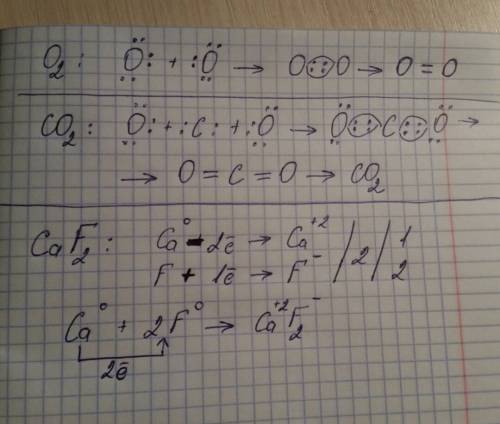 O₂: Ö: + :Ö → O::O → O=O
CO₂: Ö: + :C: + :Ö → Ö::C::Ö →
→ O=C=O → CO₂
CaF₂: Ca⁰ - 2ē → Ca⁺² / 2 / 1
F + 1ē → F⁻ 2
Ca⁰ + 2F⁰ → Ca⁺²F₂⁻
2ē